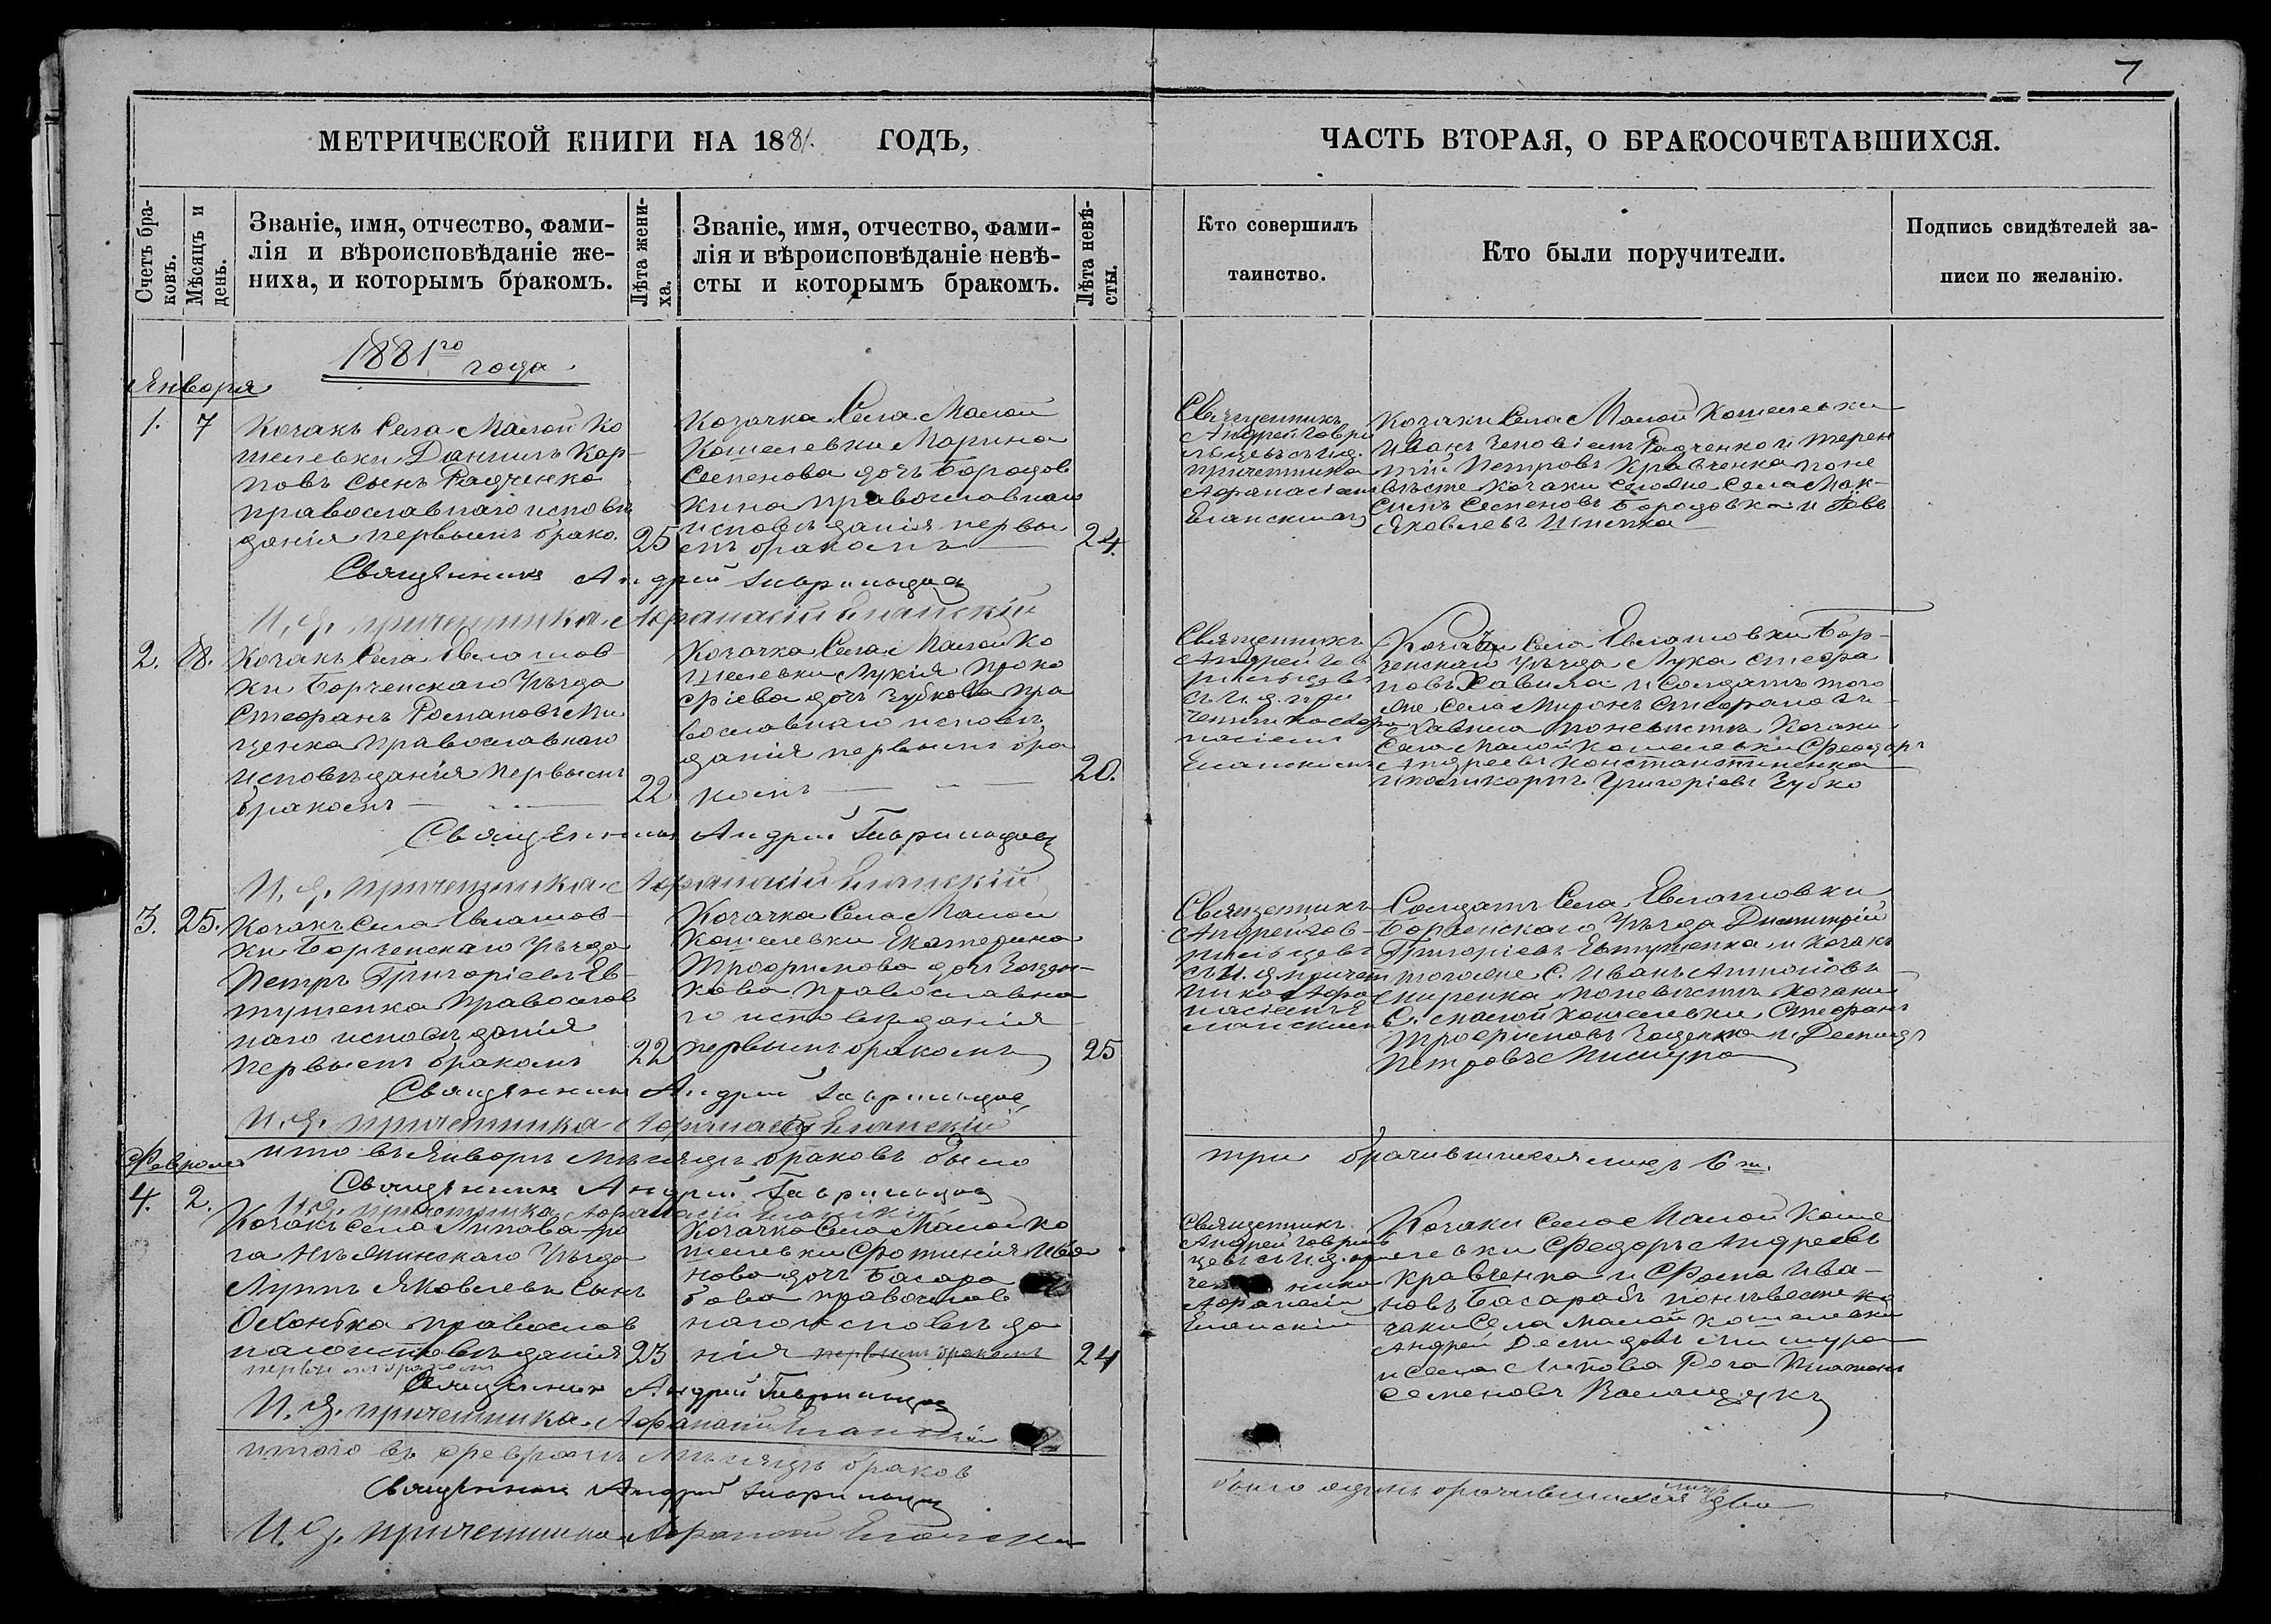 7
МЕТРИЧЕСКОЙ КНИГИ НА 1881. ГОДЪ,
ЧАСТЬ ВТОРАЯ, О БРАКОСОЧЕТАВШИХСЯ.
Счетъ бра-
ковъ.
Мѣсяцъ и
день.
Званіе, имя, отчество, фами-
лія и вѣроисповѣданіе же-
ниха, и которымъ бракомъ.
Лѣта жени-
ха.
Званіе, имя, отчество, фами-
лія и вѣроисповѣданіе невѣ-
сты и которымъ бракомъ.
Лѣта невѣ-
сты.
Кто совершилъ
таинство.
Кто были поручители.
Подпись свидѣтелей за-
писи по желанію.
1881го
года
Января
1. 7
Козакъ Села Малой Ко
шелевки Даніилъ Кар-
повъ Сынъ Радченко
православнаго исповѣ
данія первымъ брако. 25
Козачка Села Малой
Кошелевки Марина
Семенова дочь Бородов
кина православнаго
исповѣданія первы
мъ бракомъ 24
Священникъ
Андрей Гаври
льцевъ съ И.д.
причетника
Афанасіем
Еланским
Козаки Села Малой Кошелевки
Иванъ Радченко и Терен
тій Петровъ Кравченка поне
вѣсте Козаки тойже Села Мак-
симъ Семеновъ Бородовка и Іовъ
Яковлевъ
Священникъ Андрей Гаврильцевъ
И. д. причетника Афанасій Еланскій
2. 18.
Козакъ Села Евлашов-
ки Борзенскаго Уѣзда
Стефанъ Романовъ Ми
щенка Православнаго
исповѣданія первымъ
бракомъ 22
Козачка Села Малой Ко
шелевки Лукія Проко
фіева дочь Зубкова пра
вославнаго исповѣ
данія первымъ бра
комъ 20.
Священникъ
Андрей Гав
рильцевъ
съ И.д. при
четника Афа
насіемъ
Еланскимъ
Козаки Села Евлашовки Бор-
зенскаго Уѣзда Лука Стефа
новъ Хавила и Солдатъ того
же Села Миронъ Стефановъ
Хавила поневѣстѣ Козаки
Села Малой Кошелевки Феодоръ
Андреевъ Константиненка
и Поликарпъ Григоріевъ Зубко
Священникъ Андрей Гаврильцевъ
И. д. причетника Афанасій Еланскій
3. 25.
Козакъ Села Евлашов-
ки Борзенскаго Уѣзда
Петръ Григоріевъ Ев-
тушенка Православ
наго исповѣданія
первымъ бракомъ 22
Козачка Села Малой
Кошелевки Екатерина
Трофимова дочь
кова православна
го исповѣданія
первымъ бракомъ 25
Священникъ
Андрей Гав-
рильцевъ
съ И. д. причет
ника Афа
насіемъ Е
ланскимъ
Солдатъ Села Евлашовки
Борзенскаго Уѣзда Димитрій
Григоріевъ Евтушенка и Козакъ
тогоже С. Иванъ Антоновъ
поневѣстѣ Козаки
С. Малой Кошелевки Стефанъ
Трофимовъ и Демидъ
Петровъ Мишура
Священникъ Андрей Гаврильцевъ
И. д. причетника Афанасій Еланскій
Итого въ Январѣ Мѣсяцѣ браковъ было
три брачившихся лицъ 6ть.
Священникъ Андрей Гаврильцевъ
И. д. причетника Афанасій Еланскій
Февраля
4. 2.
Козакъ Села Липова-Ро
га Нѣжинскаго Уѣзда
Луппъ Яковлевъ Сынъ
православ
наго исповѣданія 23
первымъ бракомъ
Козачка Села Малой Ко
шелевки Фотинія Ива
нова дочь Басара
бова православ
наго исповѣда
нія первымъ бракомъ 24
Священникъ
Андрей Гавриль
цевъ съ И.д. при
четника
Афанасій
Еланскій
Козаки Села Малой Коше
левки Федоръ Андреевъ
Кравченка и Фома Ива-
новъ Басарабъ поневѣсте Ко
заки Села Малой Кошелевки
Андрей Демидовъ Мишура
и Села Липова Рога Платонъ
Семеновъ
Священникъ Андрей Гаврильцевъ
И. д. причетника Афанасій Еланскій
Итого въ Февралѣ Мѣсяцѣ браковъ
было одинъ брачившихся лицъ два
Священникъ Андрей Гаврильцевъ
И. д. причетника Афанасій Еланскій